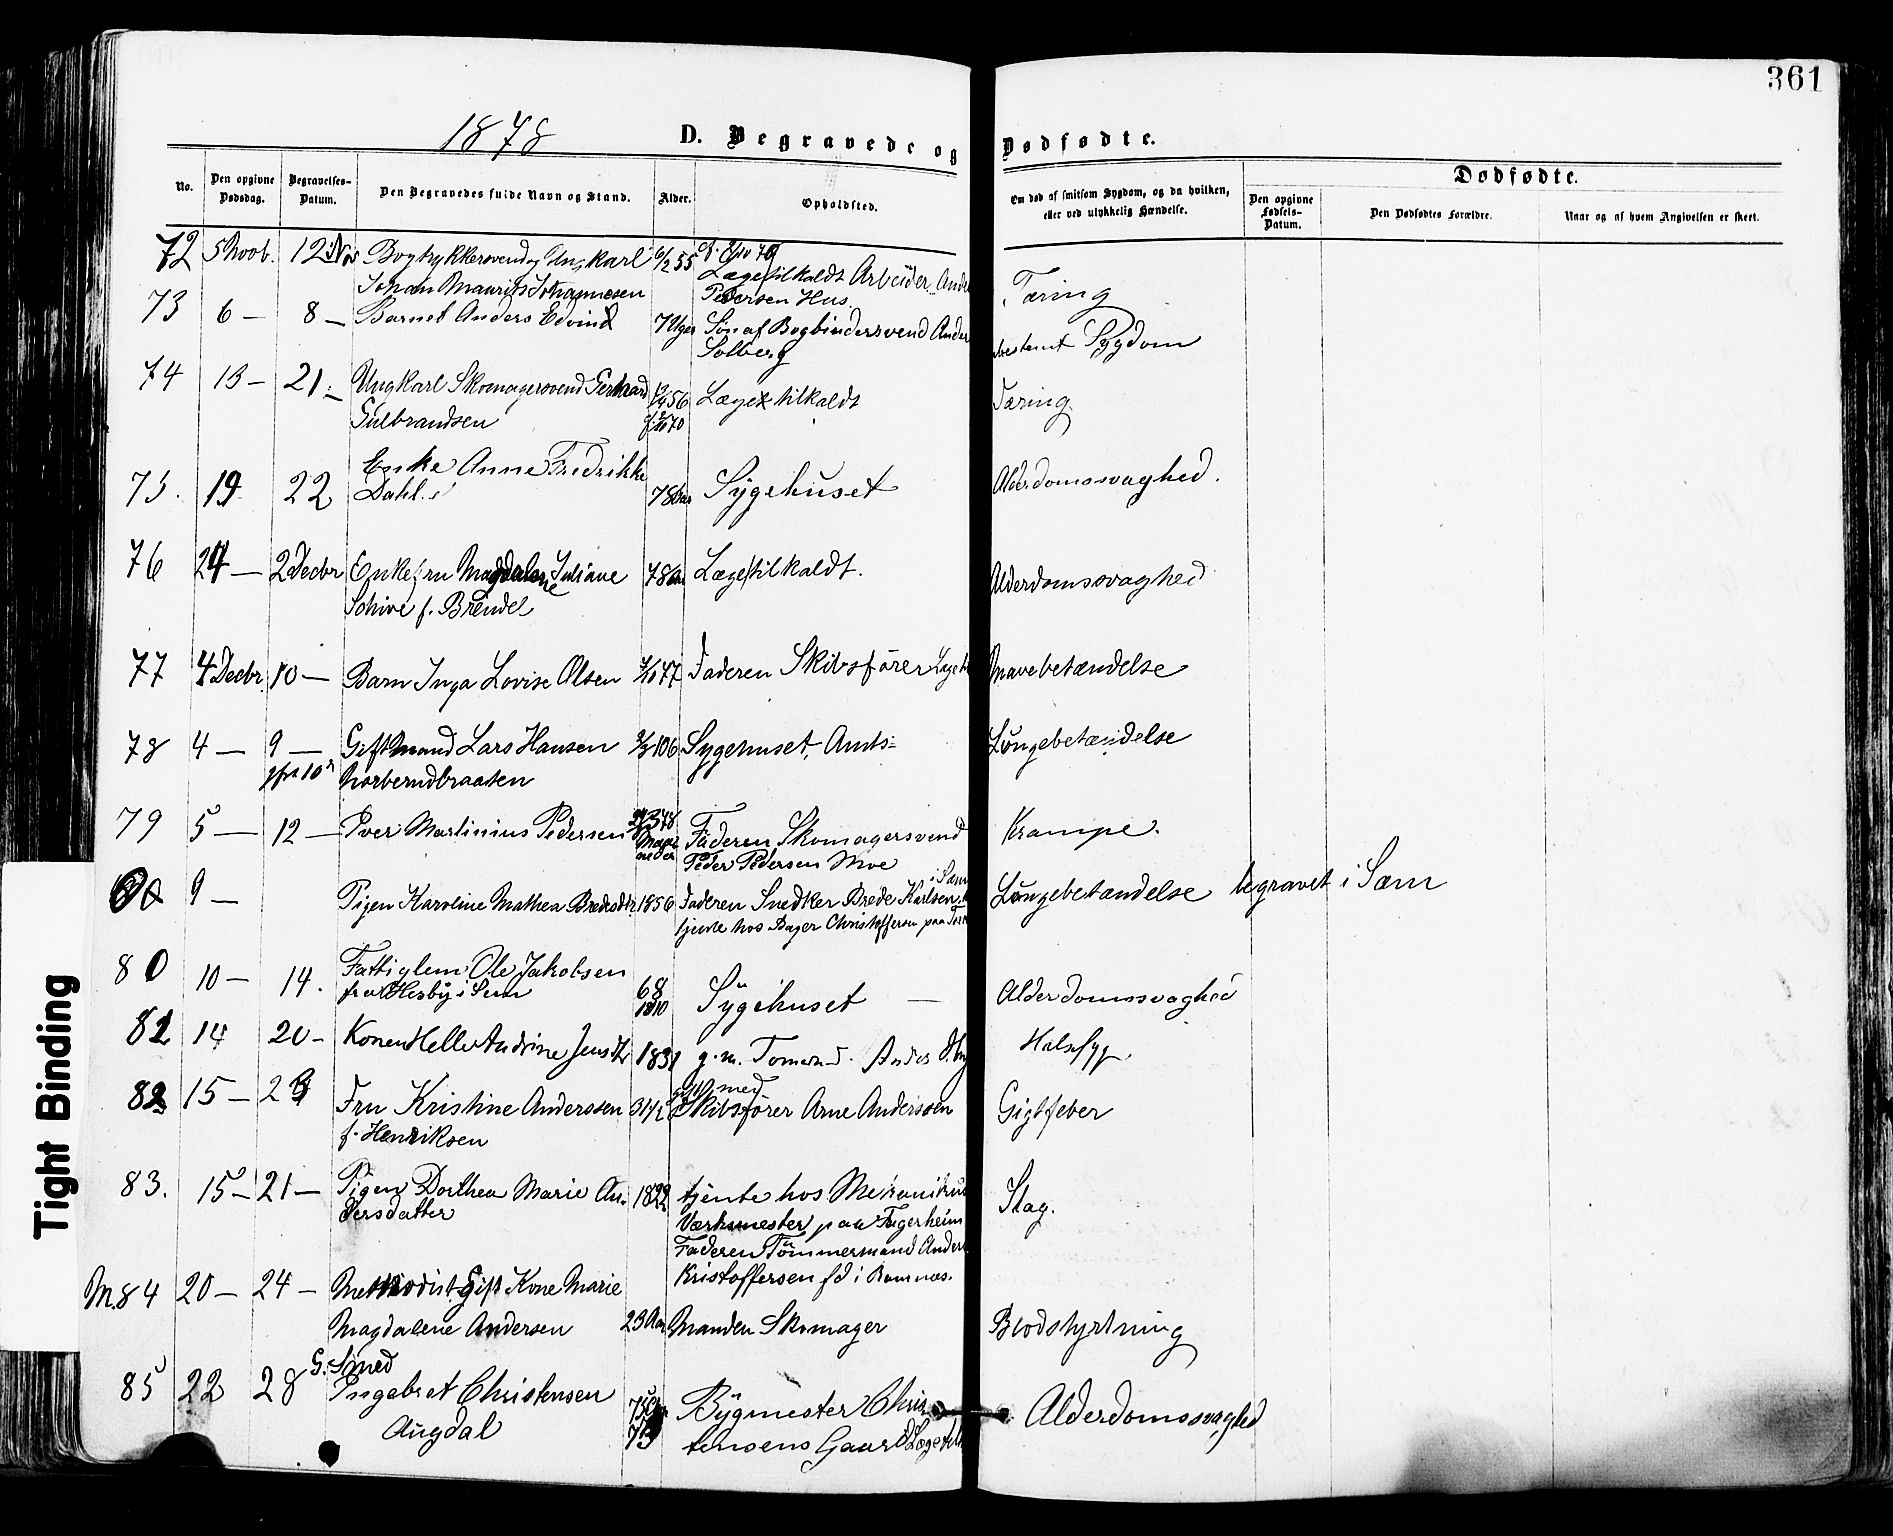 361
1878
D. Begravede og Dødfødte.
No.
Den opgivne Dødsdag.
Begravelses-Datum.
Den Begravedes fulde Navn og Stand.
Alder.
Opholdsted.
Om død af smitsom Sygdom, og da hvilken, eller ved ulykkelig Hændelse.
Dødfødte.
Den opgivne Fødsels-Datum.
Den Dødfødtes Forældre.
Naar og af hvem Angivelsen er skeet.
72 5 Novb. 12 Nov Bogtrykkersvend og Ungkarl 6/2 55
Johan Maurits Johannesen Læge tilkaldt Arbeider Ande
Pedersen Hus. Tæring
73 6 — 8 — Barnet Anders Edvind 7 Uger Søn af Bogbindersvend Ander
Solberg Sygdom
74 13 — 21 — Ungkarl Skomagersvend Gerhard 56 Læge tilkaldt Tæring
Gulbrandsen
75. 19 22 Enke Anne Fredrikke
Dahl. 78 Aar Sygehuset Alderdomssvaghed.
76 24 — 2 Decbr Enkefru Magdalene Juliane 78 Aar Læge tilkaldt. Alderdomssvaghed
Schive f. Breudel
77 4 Decbr. 10 — Barn Inga Lovise Olsen 77 Faderen Skibsfører Mavebetændelse
78 4 — 9 — Gift Mand Lars Hansen Sygehuset, Amts= Lungebetændelse
79 5 — 12 — Iver Martinius Pedersen Faderen Skomagersvend Krampe.
Maaneder Peder Pedersen Moe
9 — Pigen Karoline Mathea Bredesdtr 1856 Faderen Snedker Brede Karlsen Lungebetændelse begravet i Sæm
i Sæm
tjente hos Bager Christoffersen paa
80 10 — 14. Fattiglem Ole Jakobsen
fra Hesby i Sem 68
1810 Sygehuset — Alderdomssvaghed
81 14 20 — Konen Helle Andrine Jensdtr 1831 g. m. Halssyg.
82 15 — Fru Kristine Anderssen 31 1/2 gift med Skibsfører Arne Anderssen Gigtfeber
f. Henriksen
83. 15 — 21 — Pigen Dorthea Marie An- 1822 tjente hos Mekanikus Slag.
dersdatter Værksmester paa Fagerheim
Faderen Tømmermand Ander
Kristoffersen fd i Ramnæs.
M. 84 20 — 24 — Methodist Gift Kone Marie
Magdalene Andersen 23 Aar Manden Skomager Blodstyrtning
85 22 28 G. Smed
Ingebret Christensen 75 Bygmester Chris Alderdomssvaghed
Augdal 73 tensens Gaard Læge
Tight Binding